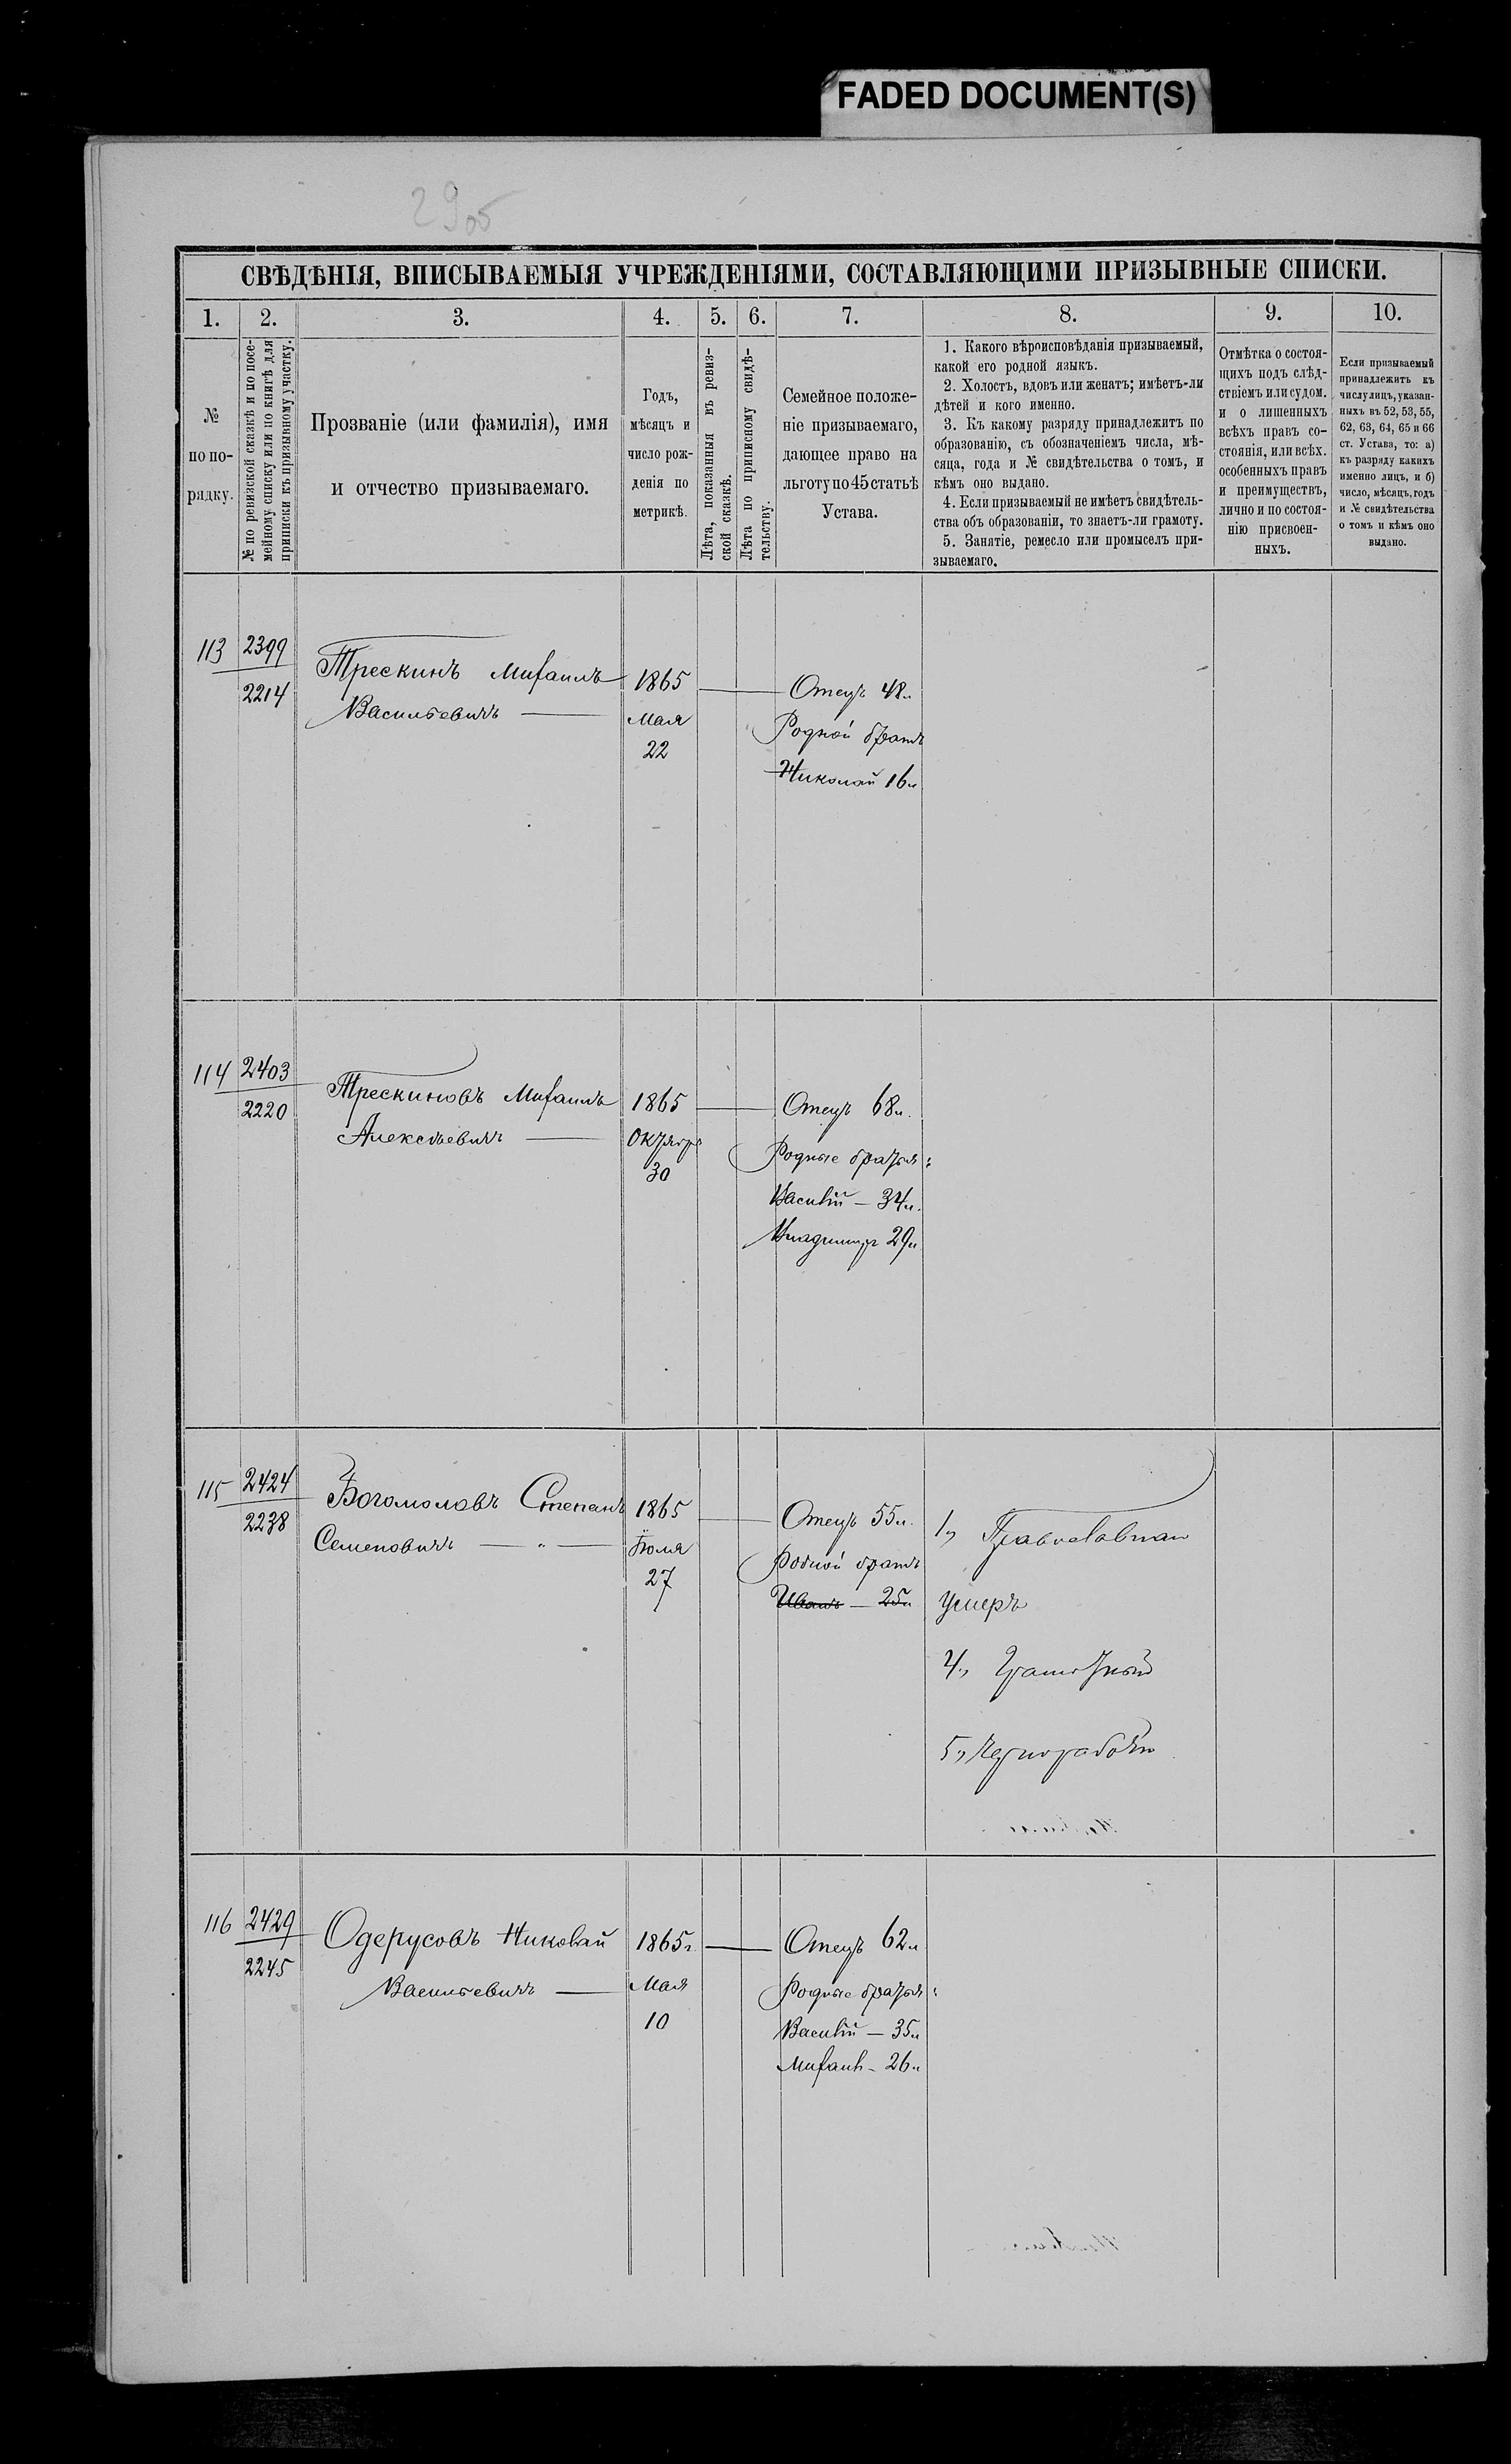 FADED DOCUMENT(S)
2905
СВѢДѢНІЯ, ВПИСЫВАЕМЫЯ УЧРЕЖДЕНІЯМИ, СОСТАВЛЯЮЩИМИ ПРИЗЫВНЫЕ СПИСКИ.
1. 2. 3. 4. 5. 6. 7. 8. 9. 10.
№
по по-
рядку.
№ по ревизской сказкѣ и по посе-
мейному списку или по книгѣ для
приписки къ призывному участку.
Прозваніе (или фамилія), имя
и отчество призываемаго.
Годъ,
мѣсяцъ и
число рож-
денія по
метрикѣ.
Лѣта, показанныя въ ревиз-
ской сказкѣ.
Лѣта по приписному свидѣ-
тельству.
Семейное положе-
ніе призываемаго,
дающее право на
льготу по 45 статьѣ
Устава.
1. Какого вѣроисповѣданія призываемый,
какой его родной языкъ.
2. Холостъ, вдовъ или женатъ; имѣетъ-ли
дѣтей и кого именно.
3. Къ какому разряду принадлежитъ по
образованію, съ обозначеніемъ числа, мѣ-
сяца, года и № свидѣтельства о томъ, и
кѣмъ оно выдано.
4. Если призываемый не имѣетъ свидѣтель-
ства объ образованіи, то знаетъ-ли грамоту.
5. Занятіе, ремесло или промыселъ при-
зываемаго.
Отмѣтка о состоя-
щихъ подъ слѣд-
ствіемъ или судом.
и о лишенныхъ
всѣхъ правъ со-
стоянія, или всѣх.
особенныхъ правъ
и преимуществъ,
лично и по состоя-
нію присвоен-
ныхъ.
Если призываемый
принадлежитъ къ
числу лицъ, указан-
ныхъ въ 52, 53, 55,
62, 63, 64, 65 и 66
ст. Устава, то: а)
къ разряду какихъ
именно лицъ, и б)
число, мѣсяцъ, годъ
и № свидѣтельства
о томъ и кѣмъ оно
выдано.
113 2399
2214
Трескинъ Михаилъ 1865 Отецъ 48 л.
Васильевичъ Мая Родной братъ
22 Николай 16 л
114 2403
2220
Трескиновъ Михаилъ 1865 Отецъ 68 л.
Алексѣевичъ Октябр. Родные братья:
30 Василій — 34 л.
Владиміръ 29 л
115 2424
2238
Богомоловъ Степанъ 1865 Отецъ 55 л. 1, Православнаго
Семеновичъ — „ — Іюля Родной братъ
27 Иванъ — 25 л Умеръ
4, Грамотный
5, Чернорабочій
116 2429
2245
Одерусовъ Николай 1865 г. Отецъ 62 л
Васильевичъ Мая Родные братья:
10 Василій — 35 л
Михаилъ — 26 л